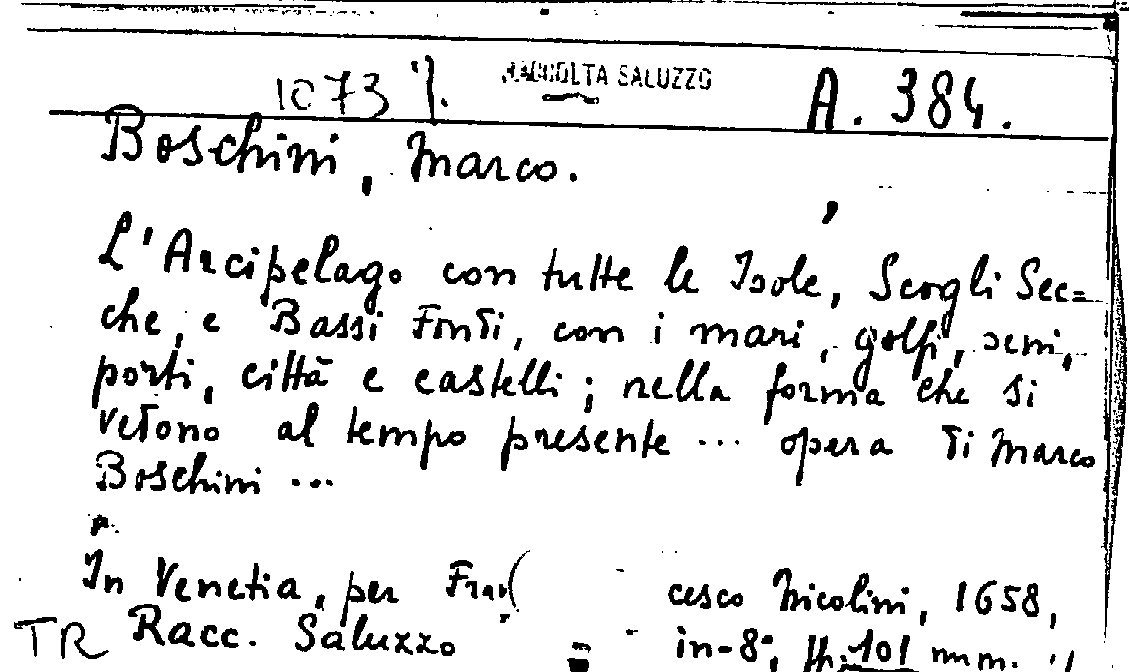 1073 RACCOLTA SALUZZO A. 384.
Boschini, Marco.
L'Arcipelago con tutte le Isole, Scogli Sec=
che, e Bassi Fondi, con i mari, golfi, seni,
porti, città e castelli; nella forma che si
vedono al tempo presente ... opera di Marco
Boschini ...
In Venetia, per Fran( cesco Nicolini, 1658,
TR Racc. Saluzzo in-8°, 101 num.